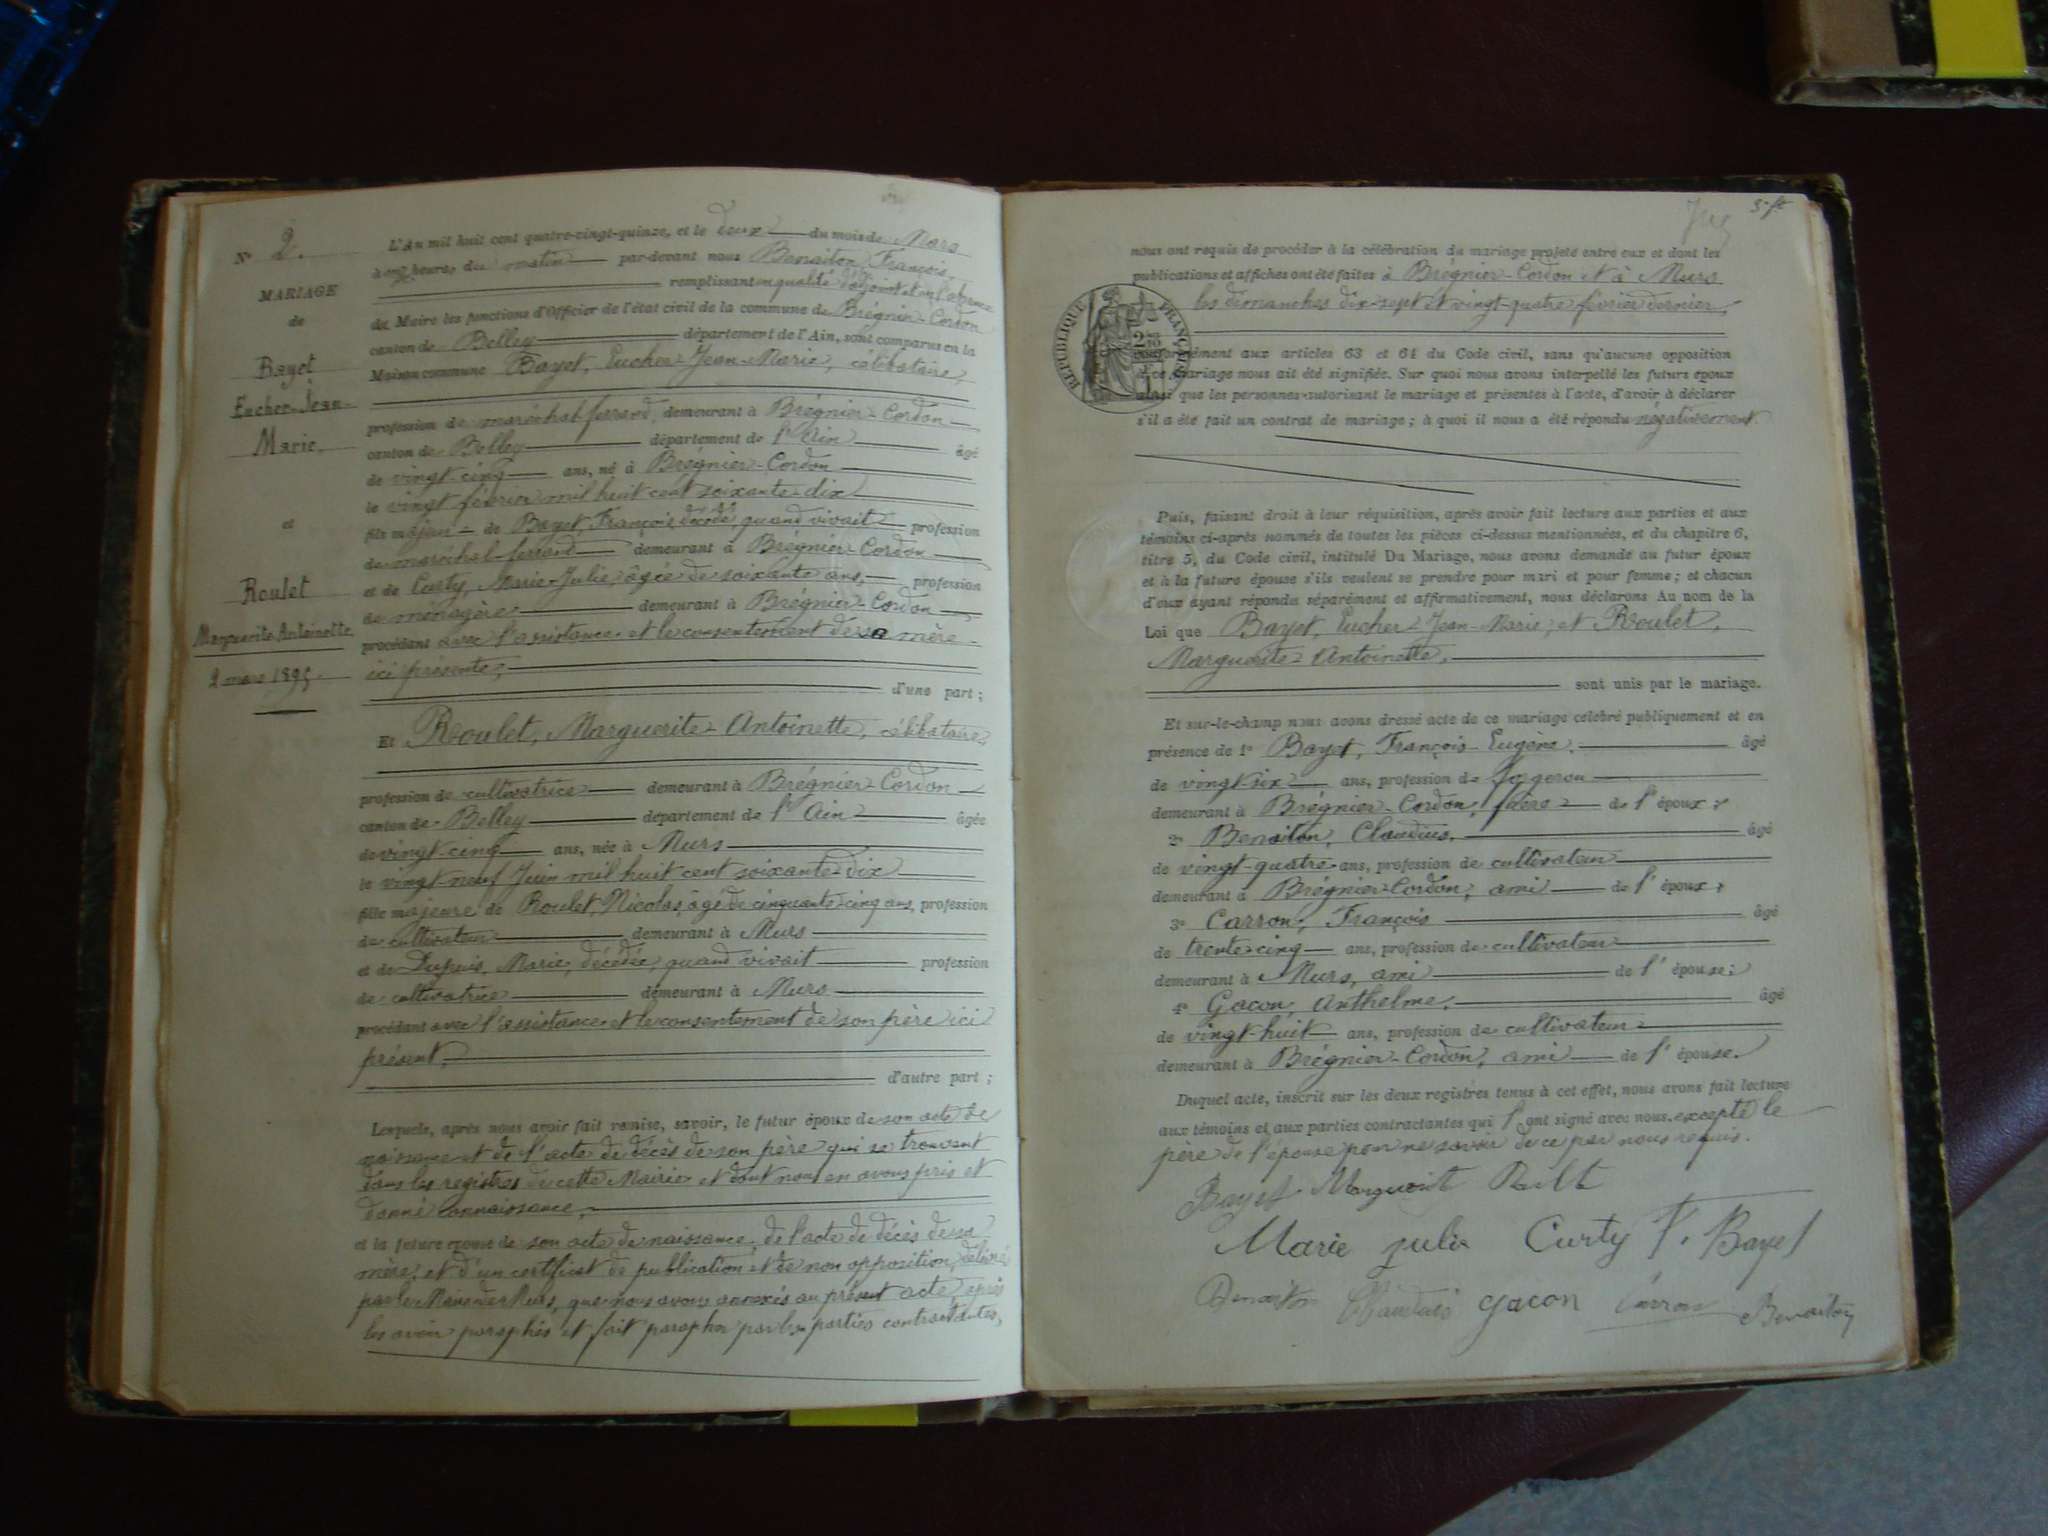 N° 2.
MARIAGE
de
Bayet
Eucher-Jean-
Marie.
et
Roulet
Marguerite-Antoinette
2 mars 1895.
L'An mil huit cent quatre-vingt-quinze, et le deux du mois de Mars
à onze heures du matin par-devant nous Benoiton, François,
remplissant en qualité d'adjoint et en l'absence
du Maire les fonctions d'Officier de l'état civil de la commune de Brégnier-Cordon
canton de Belley département de l'Ain, sont comparus en la
Maison commune Bayet, Eucher-Jean-Marie, célibataire,
profession de maréchal-ferrand, demeurant à Brégnier-Cordon
canton de Belley département de l'Ain âgé
de vingt-cinq ans, né à Brégnier-Cordon
le vingt février mil huit cent soixante-dix
fils majeur de Bayet, François décédé, quand vivait profession
de maréchal-ferrand demeurant à Brégnier-Cordon
et de Curty, Marie-Julie, âgée de soixante ans, profession
de ménagère demeurant à Brégnier-Cordon
procédant avec l'assistance et le consentement de sa mère
ici présente,
d'une part ;
Et Roulet, Marguerite-Antoinette, célibataire,
profession de cultivatrice demeurant à Brégnier-Cordon
canton de Belley département de l'Ain âgée
de vingt-cinq ans, née à Murs
le vingt-neuf Juin mil huit cent soixante-dix
fille majeure de Roulet, Nicolas, âgé de cinquante-cinq ans, profession
de cultivateur demeurant à Murs
et de Dupuis, Marie, décédée, quand vivait profession
de cultivatrice demeurant à Murs
procédant avec l'assistance et le consentement de son père ici
présent,
d'autre part ;
Lesquels, après nous avoir fait remise, savoir, le futur époux de son acte de
naissance et de l'acte de décès de son père qui se trouvent
dans les registres de cette Mairie et dont nous en avons pris et
donné connaissance,
et la future épouse de son acte de naissance, de l'acte de décès de sa
mère, et d'un certificat de publication et de non opposition, délivré
par le Maire de Murs, que nous avons annexés au présent acte après
les avoir paraphés et fait parapher par les parties contractantes,
3e ft
nous ont requis de procéder à la célébration du mariage projeté entre eux et dont les
publications et affiches ont été faites à Brégnier-Cordon et à Murs
les dimanches dix-sept et vingt-quatre février dernier,
RÉPUBLIQUE FRANÇAISE
conformément aux articles 63 et 64 du Code civil, sans qu'aucune opposition
à ce mariage nous ait été signifiée. Sur quoi nous avons interpellé les futurs époux
ainsi que les personnes autorisant le mariage et présentes à l'acte, d'avoir à déclarer
s'il a été fait un contrat de mariage ; à quoi il nous a été répondu négativement.
Puis, faisant droit à leur réquisition, après avoir fait lecture aux parties et aux
témoins ci-après nommés de toutes les pièces ci-dessus mentionnées, et du chapitre 6,
titre 5, du Code civil, intitulé Du Mariage, nous avons demandé au futur époux
et à la future épouse s'ils veulent se prendre pour mari et pour femme ; et chacun
d'eux ayant répondu séparément et affirmativement, nous déclarons Au nom de la
Loi que Bayet, Eucher-Jean-Marie, et Roulet,
Marguerite-Antoinette,
sont unis par le mariage.
Et sur-le-champ nous avons dressé acte de ce mariage célébré publiquement et en
présence de 1° Bayet, François-Eugène, âgé
de vingt-six ans, profession de forgeron
demeurant à Brégnier-Cordon, frère de l'époux ;
2° Benoiton, Claudius, âgé
de vingt-quatre ans, profession de cultivateur
demeurant à Brégnier-Cordon, ami de l'époux ;
3° Carron, François âgé
de trente-cinq ans, profession de cultivateur
demeurant à Murs, ami de l'épouse ;
4° Gacon, Anthelme, âgé
de vingt-huit ans, profession de cultivateur
demeurant à Brégnier-Cordon, ami de l'épouse.
Duquel acte, inscrit sur les deux registres tenus à cet effet, nous avons fait lecture
aux témoins et aux parties contractantes qui l'ont signé avec nous excepté le
père de l'épouse pour ne savoir de ce par nous requis.
Bayet Marguerite
Marie Julie Curty F. Bayet
Benoiton Claudius Gacon Carron Benoiton